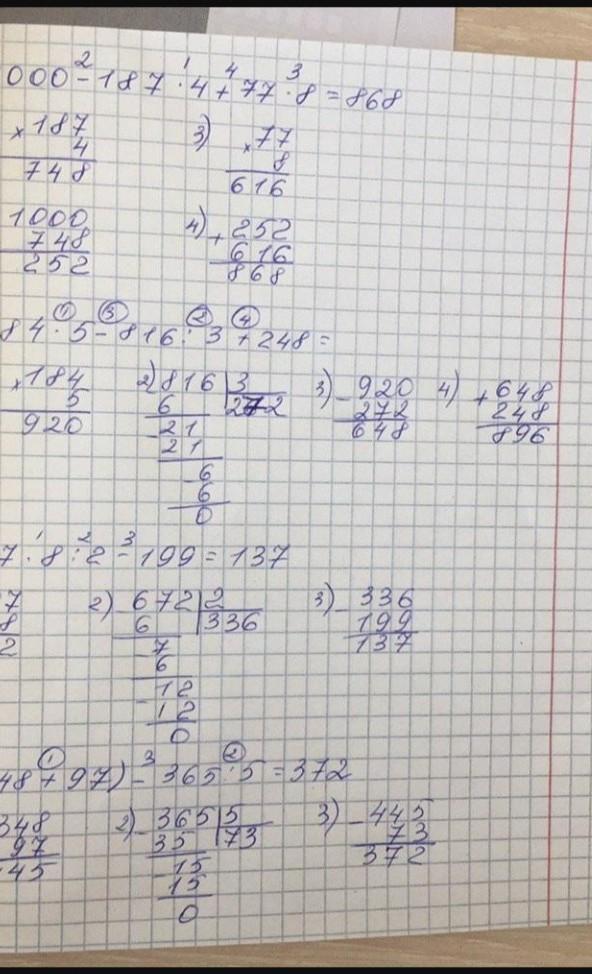 000 - 187 · 4 + 77 · 8 = 868
2 1 4 3
× 187 3) × 77
4 8
748 616
1000 4) + 252
748 616
252 868
84 · 5 - 816 : 3 + 248 =
1 3 2 4
× 184 2) 816 | 3 3) - 920 4) + 648
5 6 272 272 248
920 - 21 648 896
21
- 6
6
0
7 · 8 : 2 - 199 = 137
1 2 3
7 2) - 672 | 2 3) - 336
8 6 336 199
2 7 137
6
- 12
12
0
48 + 97) - 365 : 5 = 372
1 3 2
348 2) - 365 | 5 3) - 445
97 35 73 73
45 - 15 372
15
0